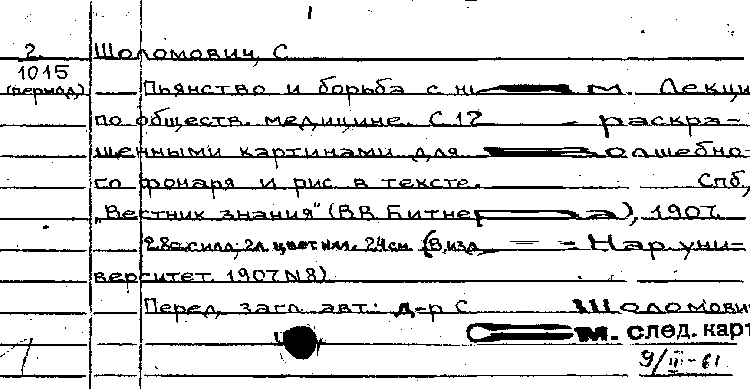 2. Шоломович, С.
1015
(период) Пьянство и борьба с н м. Лекци
по обществ. медицине. С 12 - раскра-
шенными картинами для олшебно-
го фонаря и рис. в тексте. Спб,
„Вестник знания" (В.В. Битнер а), 1907.
28с. илл., 2л. цвет. илл. 24см. (В изд. - Нар. уни-
верситет. 1907 N 8)
Перед загл. авт.: д-р С Шоломови
м. след. карт
9/III-61